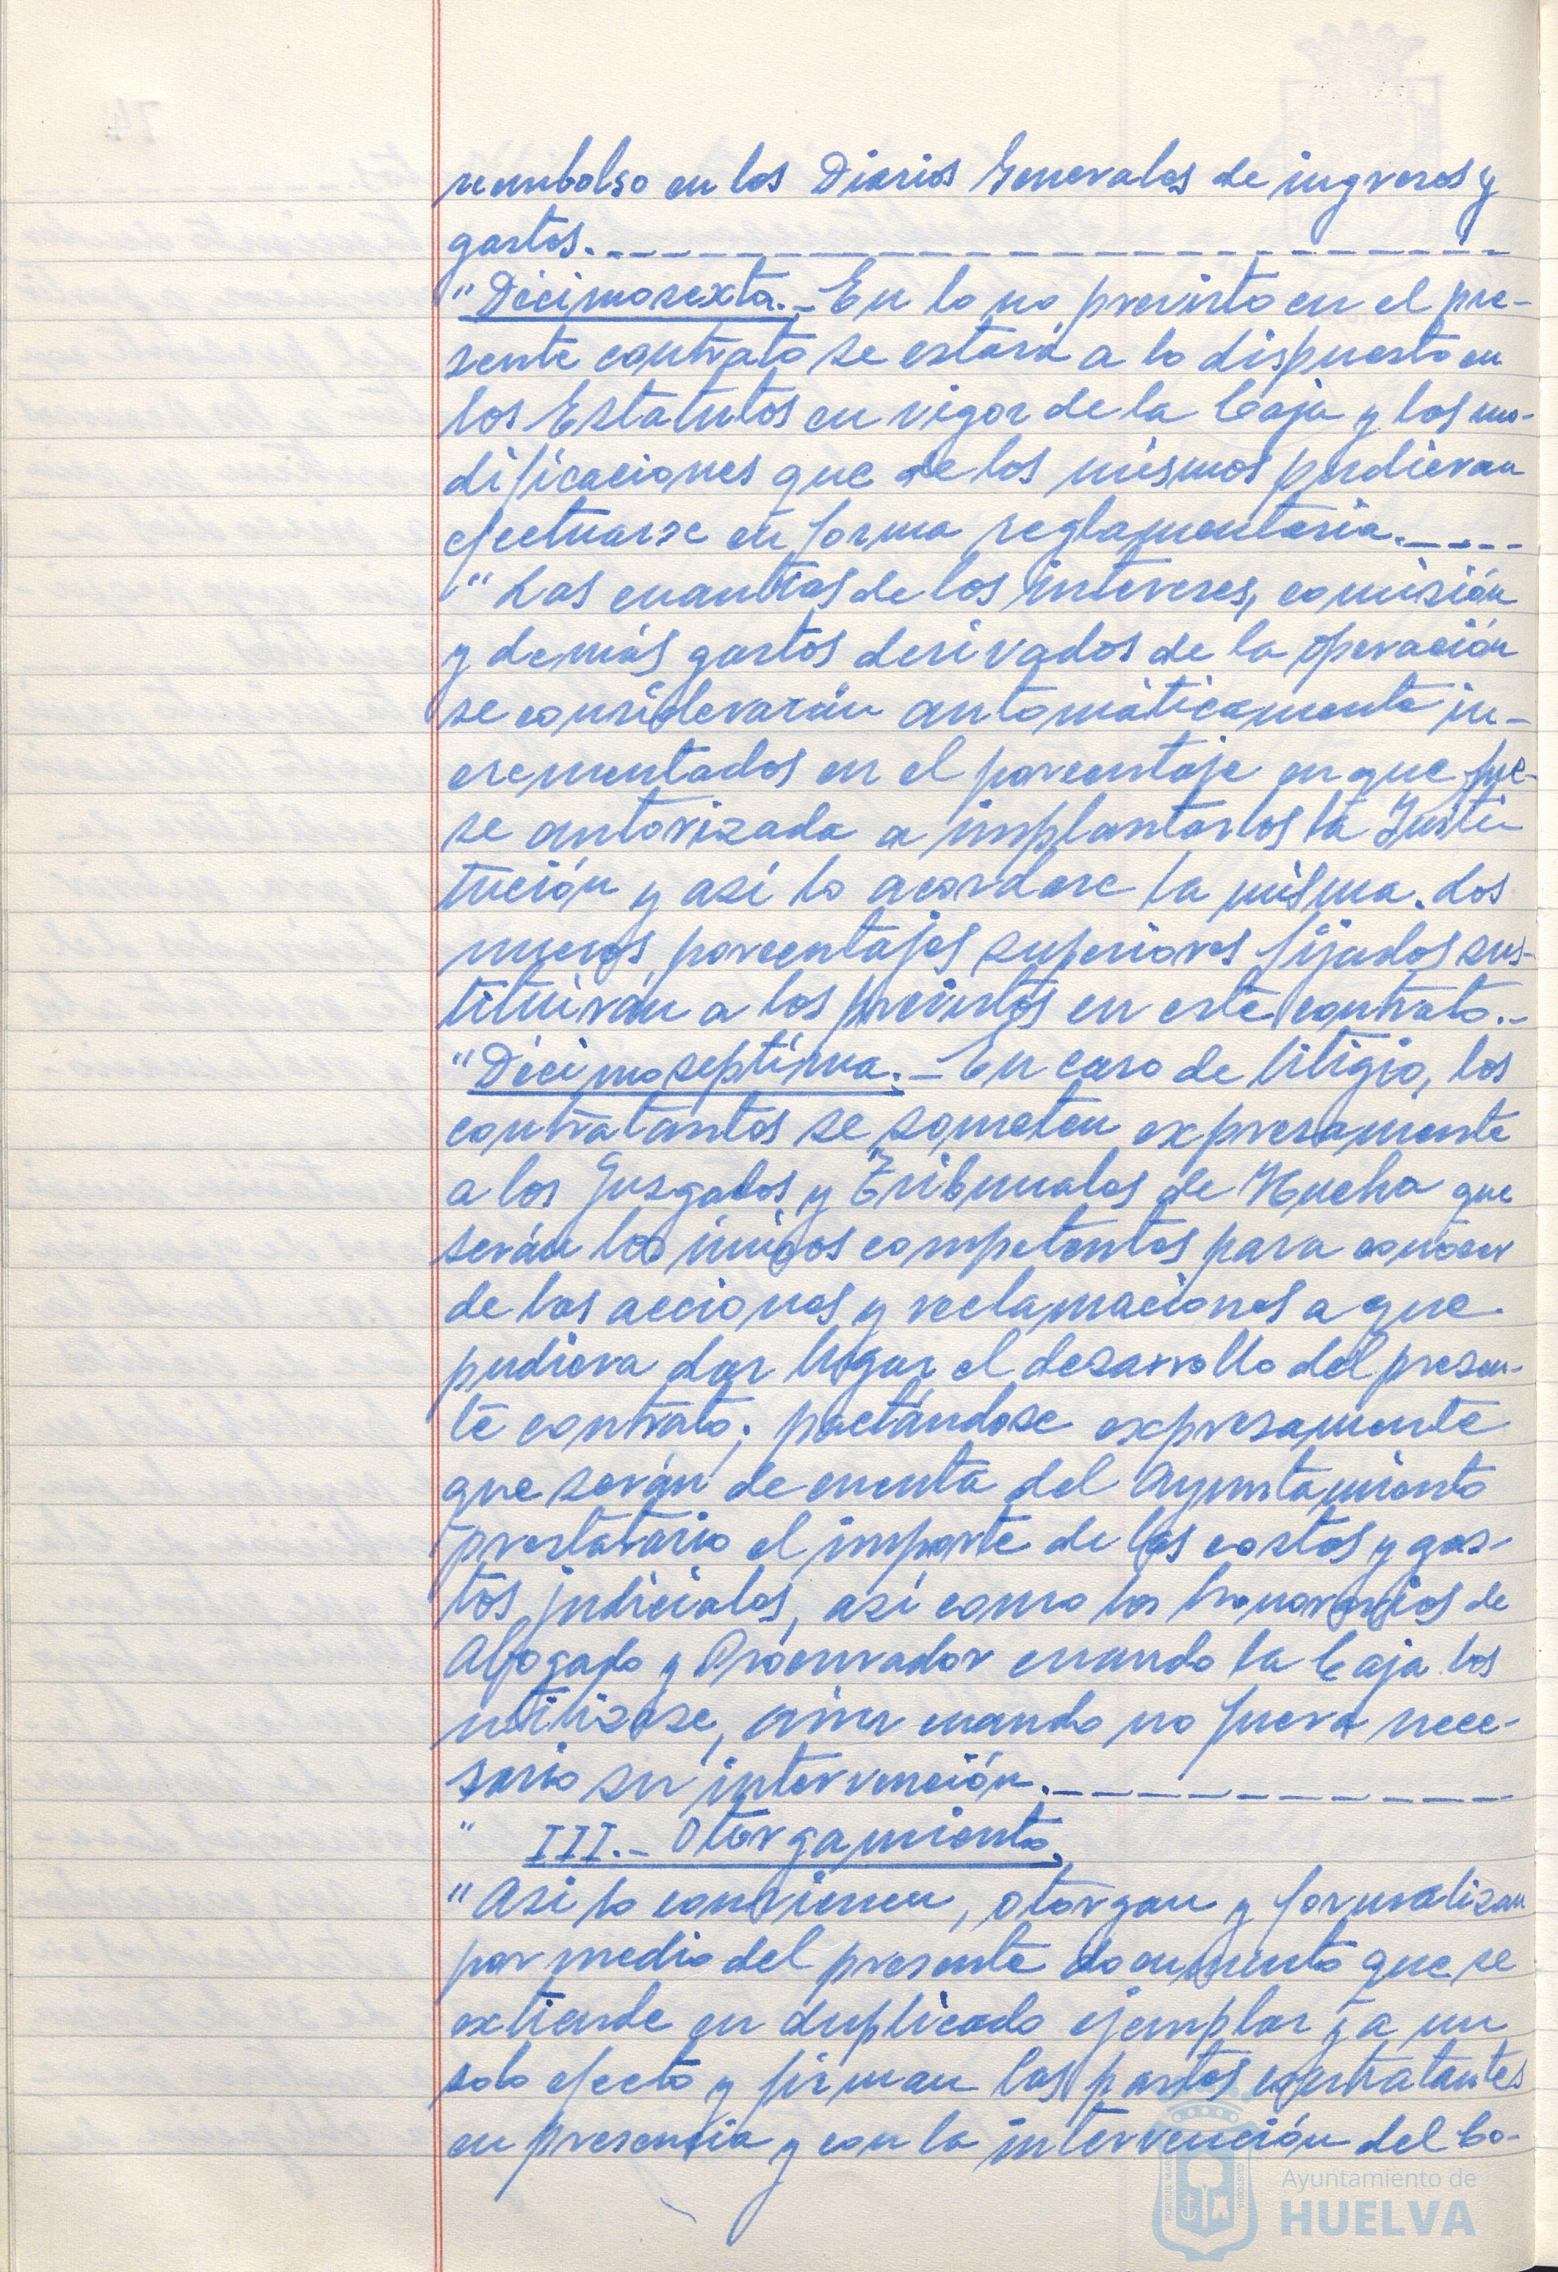 reembolso en los Diarios Generales de ingresos y
gastos.
"Decimosexta.- En lo no previsto en el pre-
sente contrato se estará a lo dispuesto en
los Estatutos en vigor de la Caja y las mo-
dificaciones que de los mismos pudieran
efectuarse en forma reglamentaria.
"Las cuantías de los intereses, comisión
y demás gastos derivados de la operación
se considerarán automáticamente in-
crementados en el porcentaje en que fue-
se autorizada a implantarlos la Insti-
tución y así lo acordase la misma. Los
nuevos porcentajes superiores fijados sus-
tituirán a los previstos en este contrato.-
"Décimoseptima.- En caso de litigio, los
contratantes se someten expresamente
a los Juzgados y Tribunales de Huelva que
serán los únicos competentes para conocer
de las acciones y reclamaciones a que
pudiera dar lugar el desarrollo del presen-
te contrato; pactándose expresamente
que serán de cuenta del Ayuntamiento
prestatario el importe de las costas y gas-
tos judiciales, así como los honorarios de
Abogado y Procurador cuando la Caja los
utilizase, aún cuando no fuera nece-
sario su intervención.
" III.- Otorgamiento.
"Asi lo convienen, otorgan y formalizan
por medio del presente documento que se
extiende en duplicado ejemplar y a un
solo efecto y firman las partes contratantes
en presencia y con la intervención del Co-
Ayuntamiento de
HUELVA